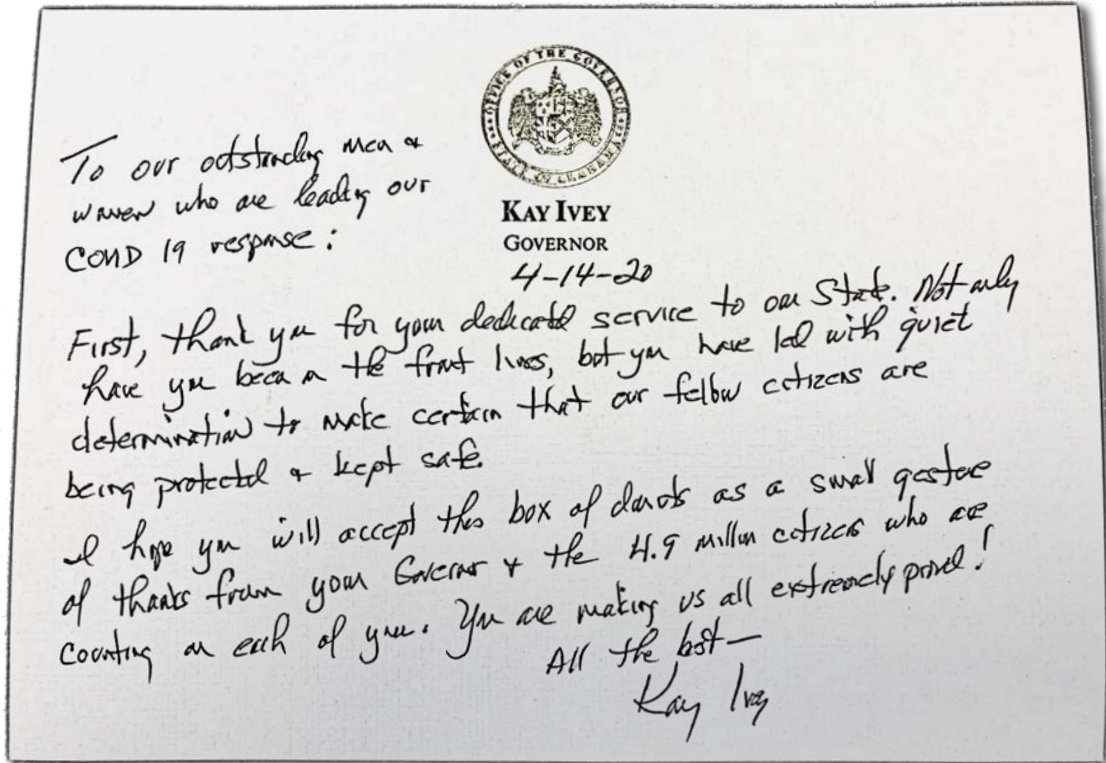 OFFICE OF THE GOVERNOR
STATE OF ALABAMA
KAY IVEY
GOVERNOR
4-14-20
To our outstanding men &
women who are leading our
COVID 19 response:
First, thank you for your dedicated service to our State. Not only
have you been on the front lines, but you have led with quiet
determination to make certain that our fellow citizens are
being protected & kept safe.
I hope you will accept this box of donuts as a small gesture
of thanks from your Governor & the 4.9 million citizens who are
counting on each of you. You are making us all extremely proud!
All the best—
Kay Ivey